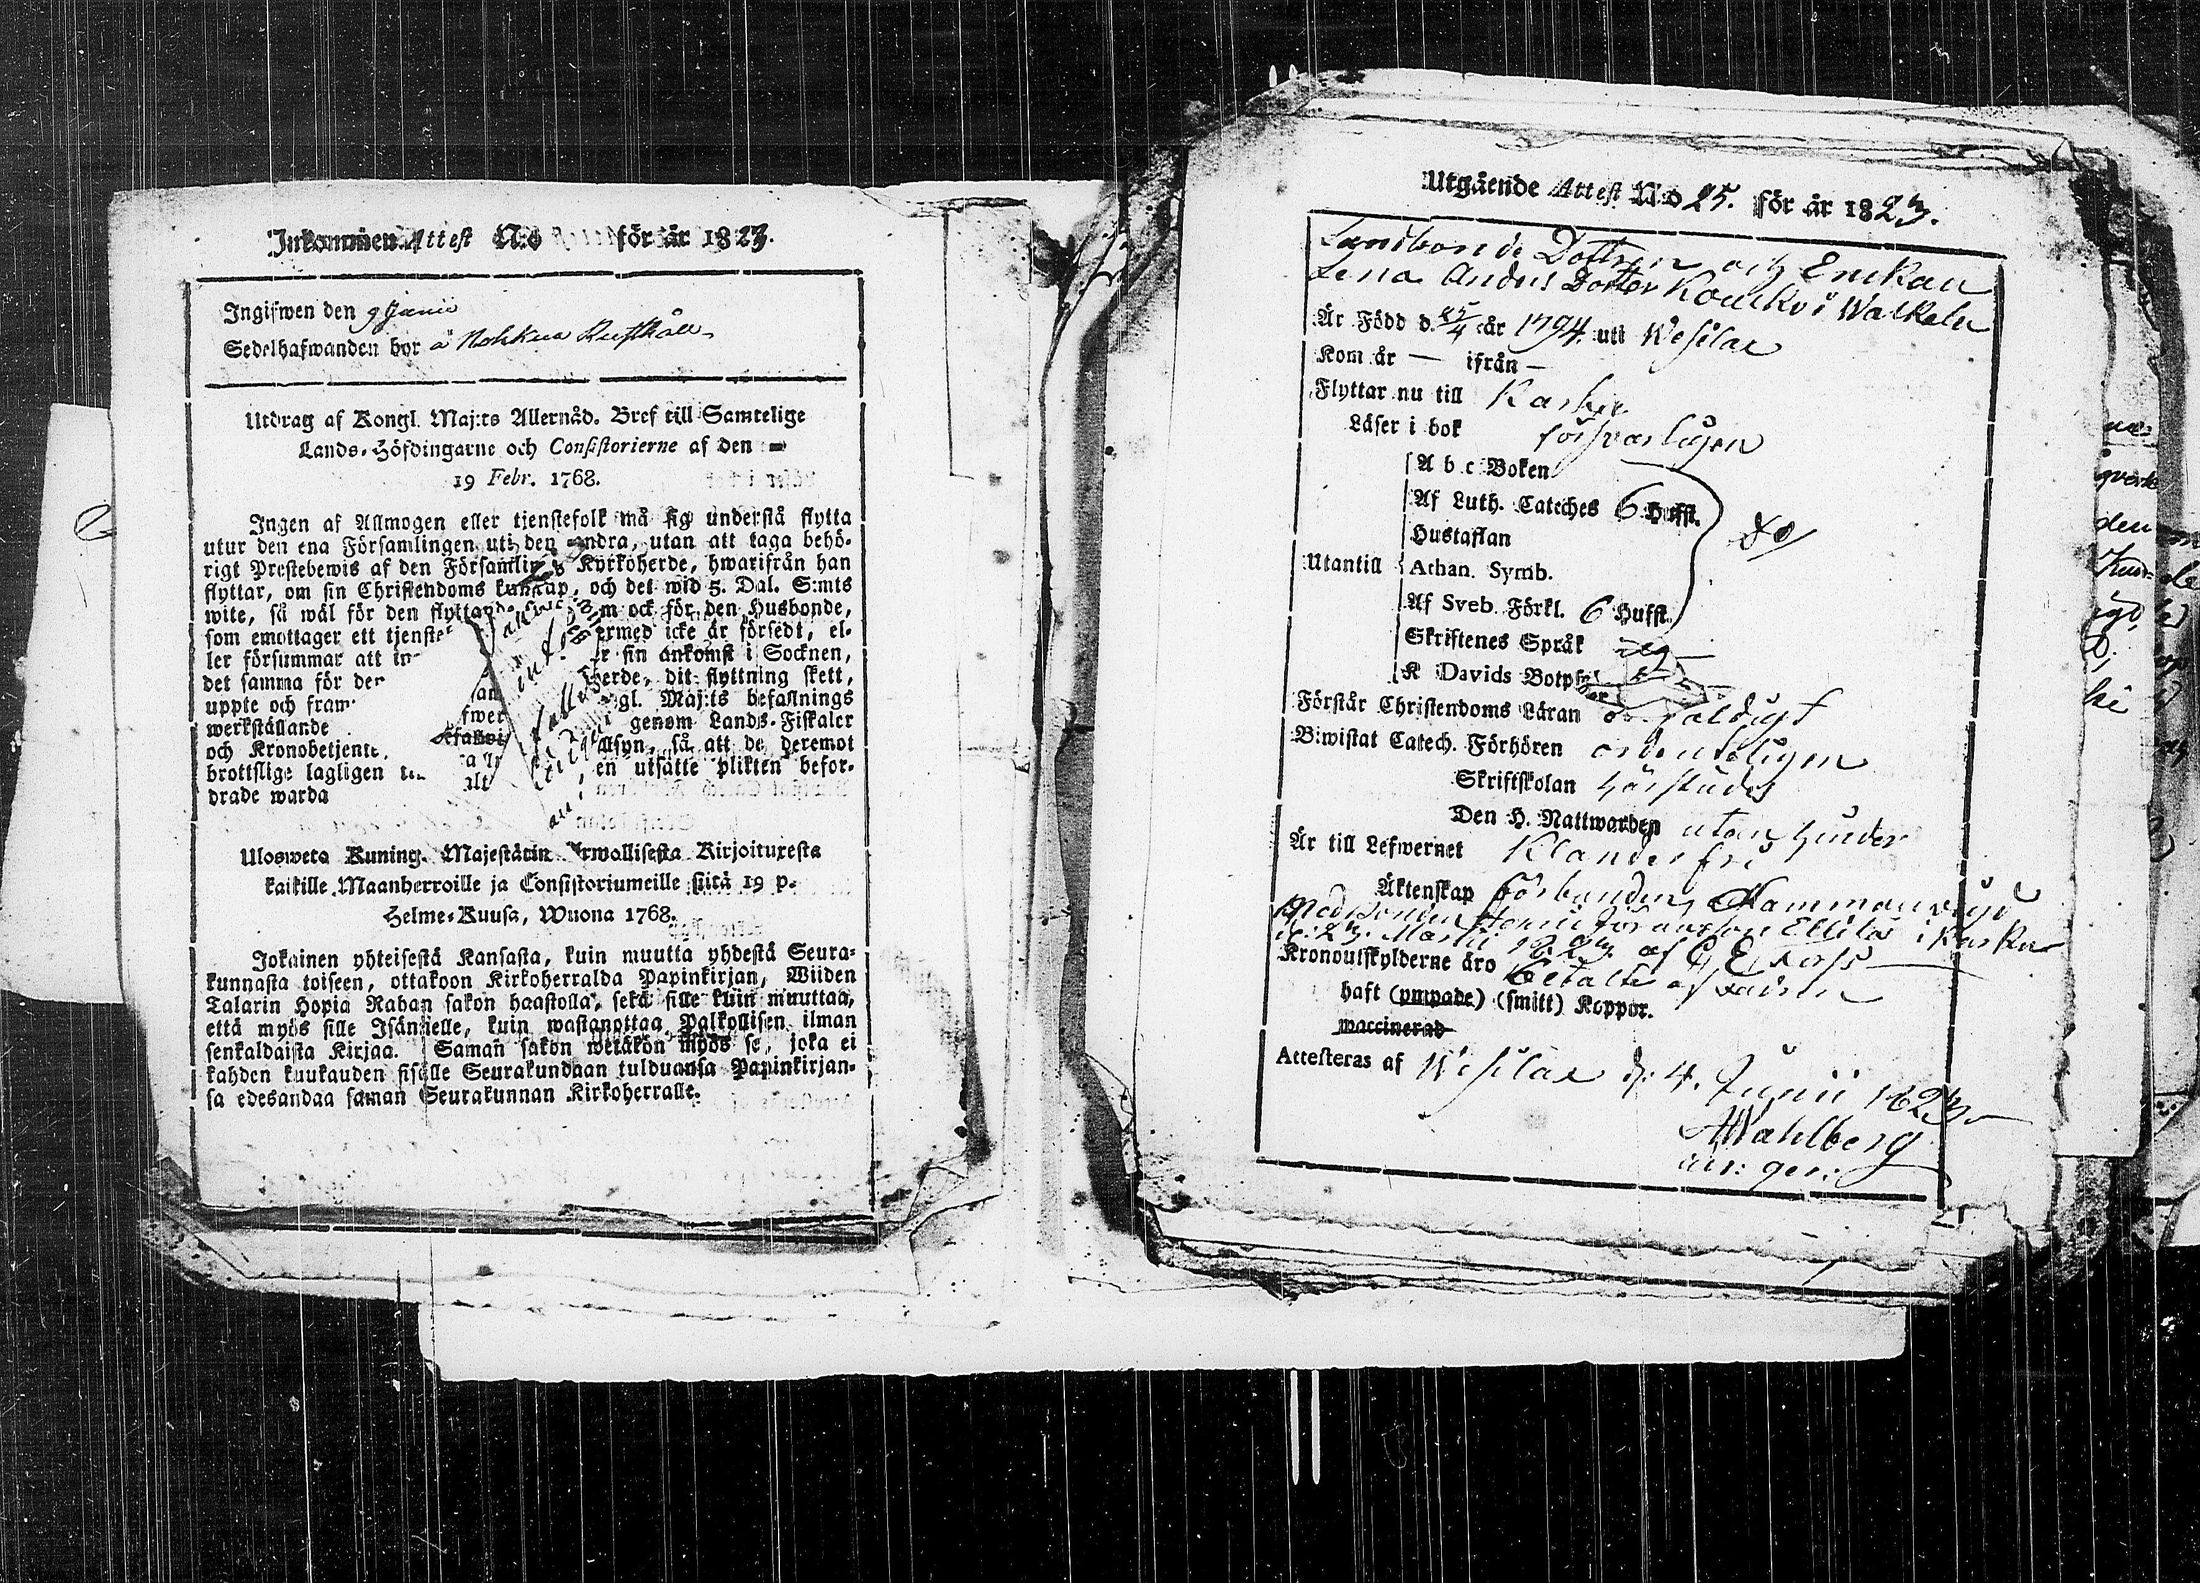 Inkommen Attest N:o för år 1823.
Ingifwen den 9 Junii
Sedelhafwanden bor å Nohkua Rusthåll
Utdrag af Kongl. Maj:ts Allernåd. Bref till Samtelige
Lands-Höfdingarne och Consistorierne af den
19 Febr. 1768.
Ingen af Allmogen eller tjenstefolk må sig understå flytta
utur den ena Församlingen uti den andra, utan att taga behö-
rigt Prestebewis af den Församlings Kyrkoherde, hwarifrån han
flyttar, om sin Christendoms kunskap, och det wid 5. Dal. S:mts
wite, så wäl för den flyttande som ock för den Husbonde,
som emottager ett tjenste ermed icke är försedt, el-
ler försummar att in r sin ankomst i Socknen,
det samma för der herde, dit flyttning skett,
uppte och fram gl. Maj:ts befallnings
werkställande genom Lands-Fiskaler
och Kronobetjente, allsyn, så att de deremot
brottslige lagligen en utsatte plikten befor-
drade warda
Ulosweto Kuning. Majestätin Arwollisesta Kirjoituxesta
kaikille Maanherroille ja Consistoriumeille siitä 19 p.
Helme-Kuusa, Wuona 1768.
Jokainen yhteisestä Kansasta, kuin muutta yhdestä Seura-
kunnasta toiseen, ottakoon Kirkoherralda Papinkirjan, Wiiden
Talarin Hopia Rahan sakon haastolla, sekä sille kuin muuttaa,
että myös sille Isännelle, kuin wastanottaa Palkollisen ilman
senkaldaista Kirjaa. Saman sakon wetäkön myös se, joka ei
kahden kuukauden sisälle Seurakundaan tulduansa Papinkirjan-
sa edesandaa saman Seurakunnan Kirkoherralle.
Utgående Attest N:o 25. för år 1823.
Landbonde Dottren och Enckan
Lena Anders Dotter Kouckoi Walkala
Är Född d. 25/4 år 1794. uti Wesilax
Kom år — ifrån —
Flyttar nu till Karku
Läser i bok försvarligen
A b c Boken
Af Luth. Catches 6 Hufst.
Hustaflan
Utantill Athan. Symb.
Af Sveb. Förkl. 6 Hufst.
Skriftenes Språk
K Davids Botps
Förstår Christendoms Läran enfaldigt
Biwistat Catech. Förhören ordenteligen
Skriftskolan härstädes
Den H. Nattwarden utan hinder
Är till Lefwernet Klanderfri
Äktenskap förbunden, Sammanvigd
med Bonden Henric Johansson Ellilä i Karku
d: 23. Martii 1823. af C E
Kronoutskylderne äro betalte af
haft (ympade) (smitt) Koppor.
waccinerad
Attesteras af Wesilax d. 4. Junii 1823
A Wahlberg